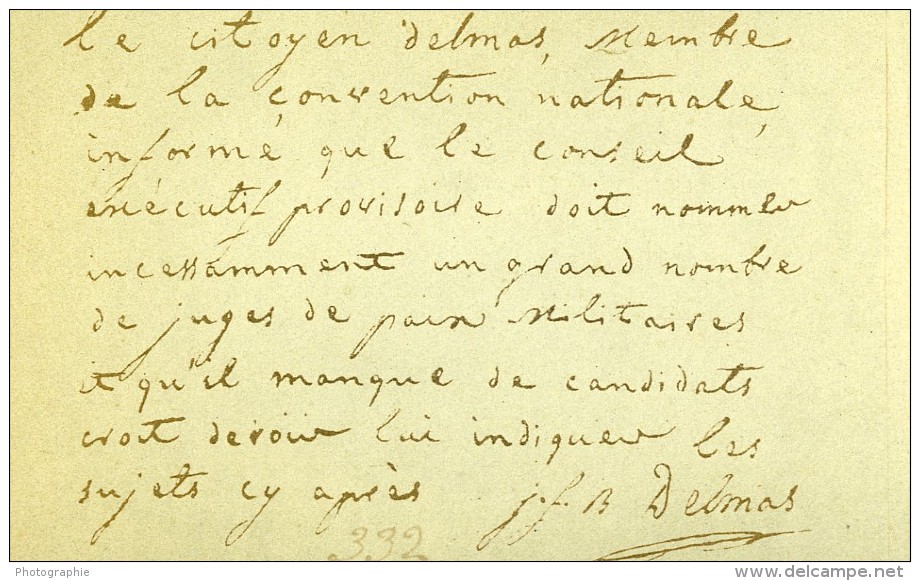 le citoyen Delmas, Membre
de la convention nationale,
informé que le conseil
exécutif provisoire doit nommer
incessamment un grand nombre
de juges de paix Militaires
et qu'il manque de candidats
croit devoir lui indiquer les
sujets cy après J. f. B Delmas
332
Photographie
www.delcampe.net